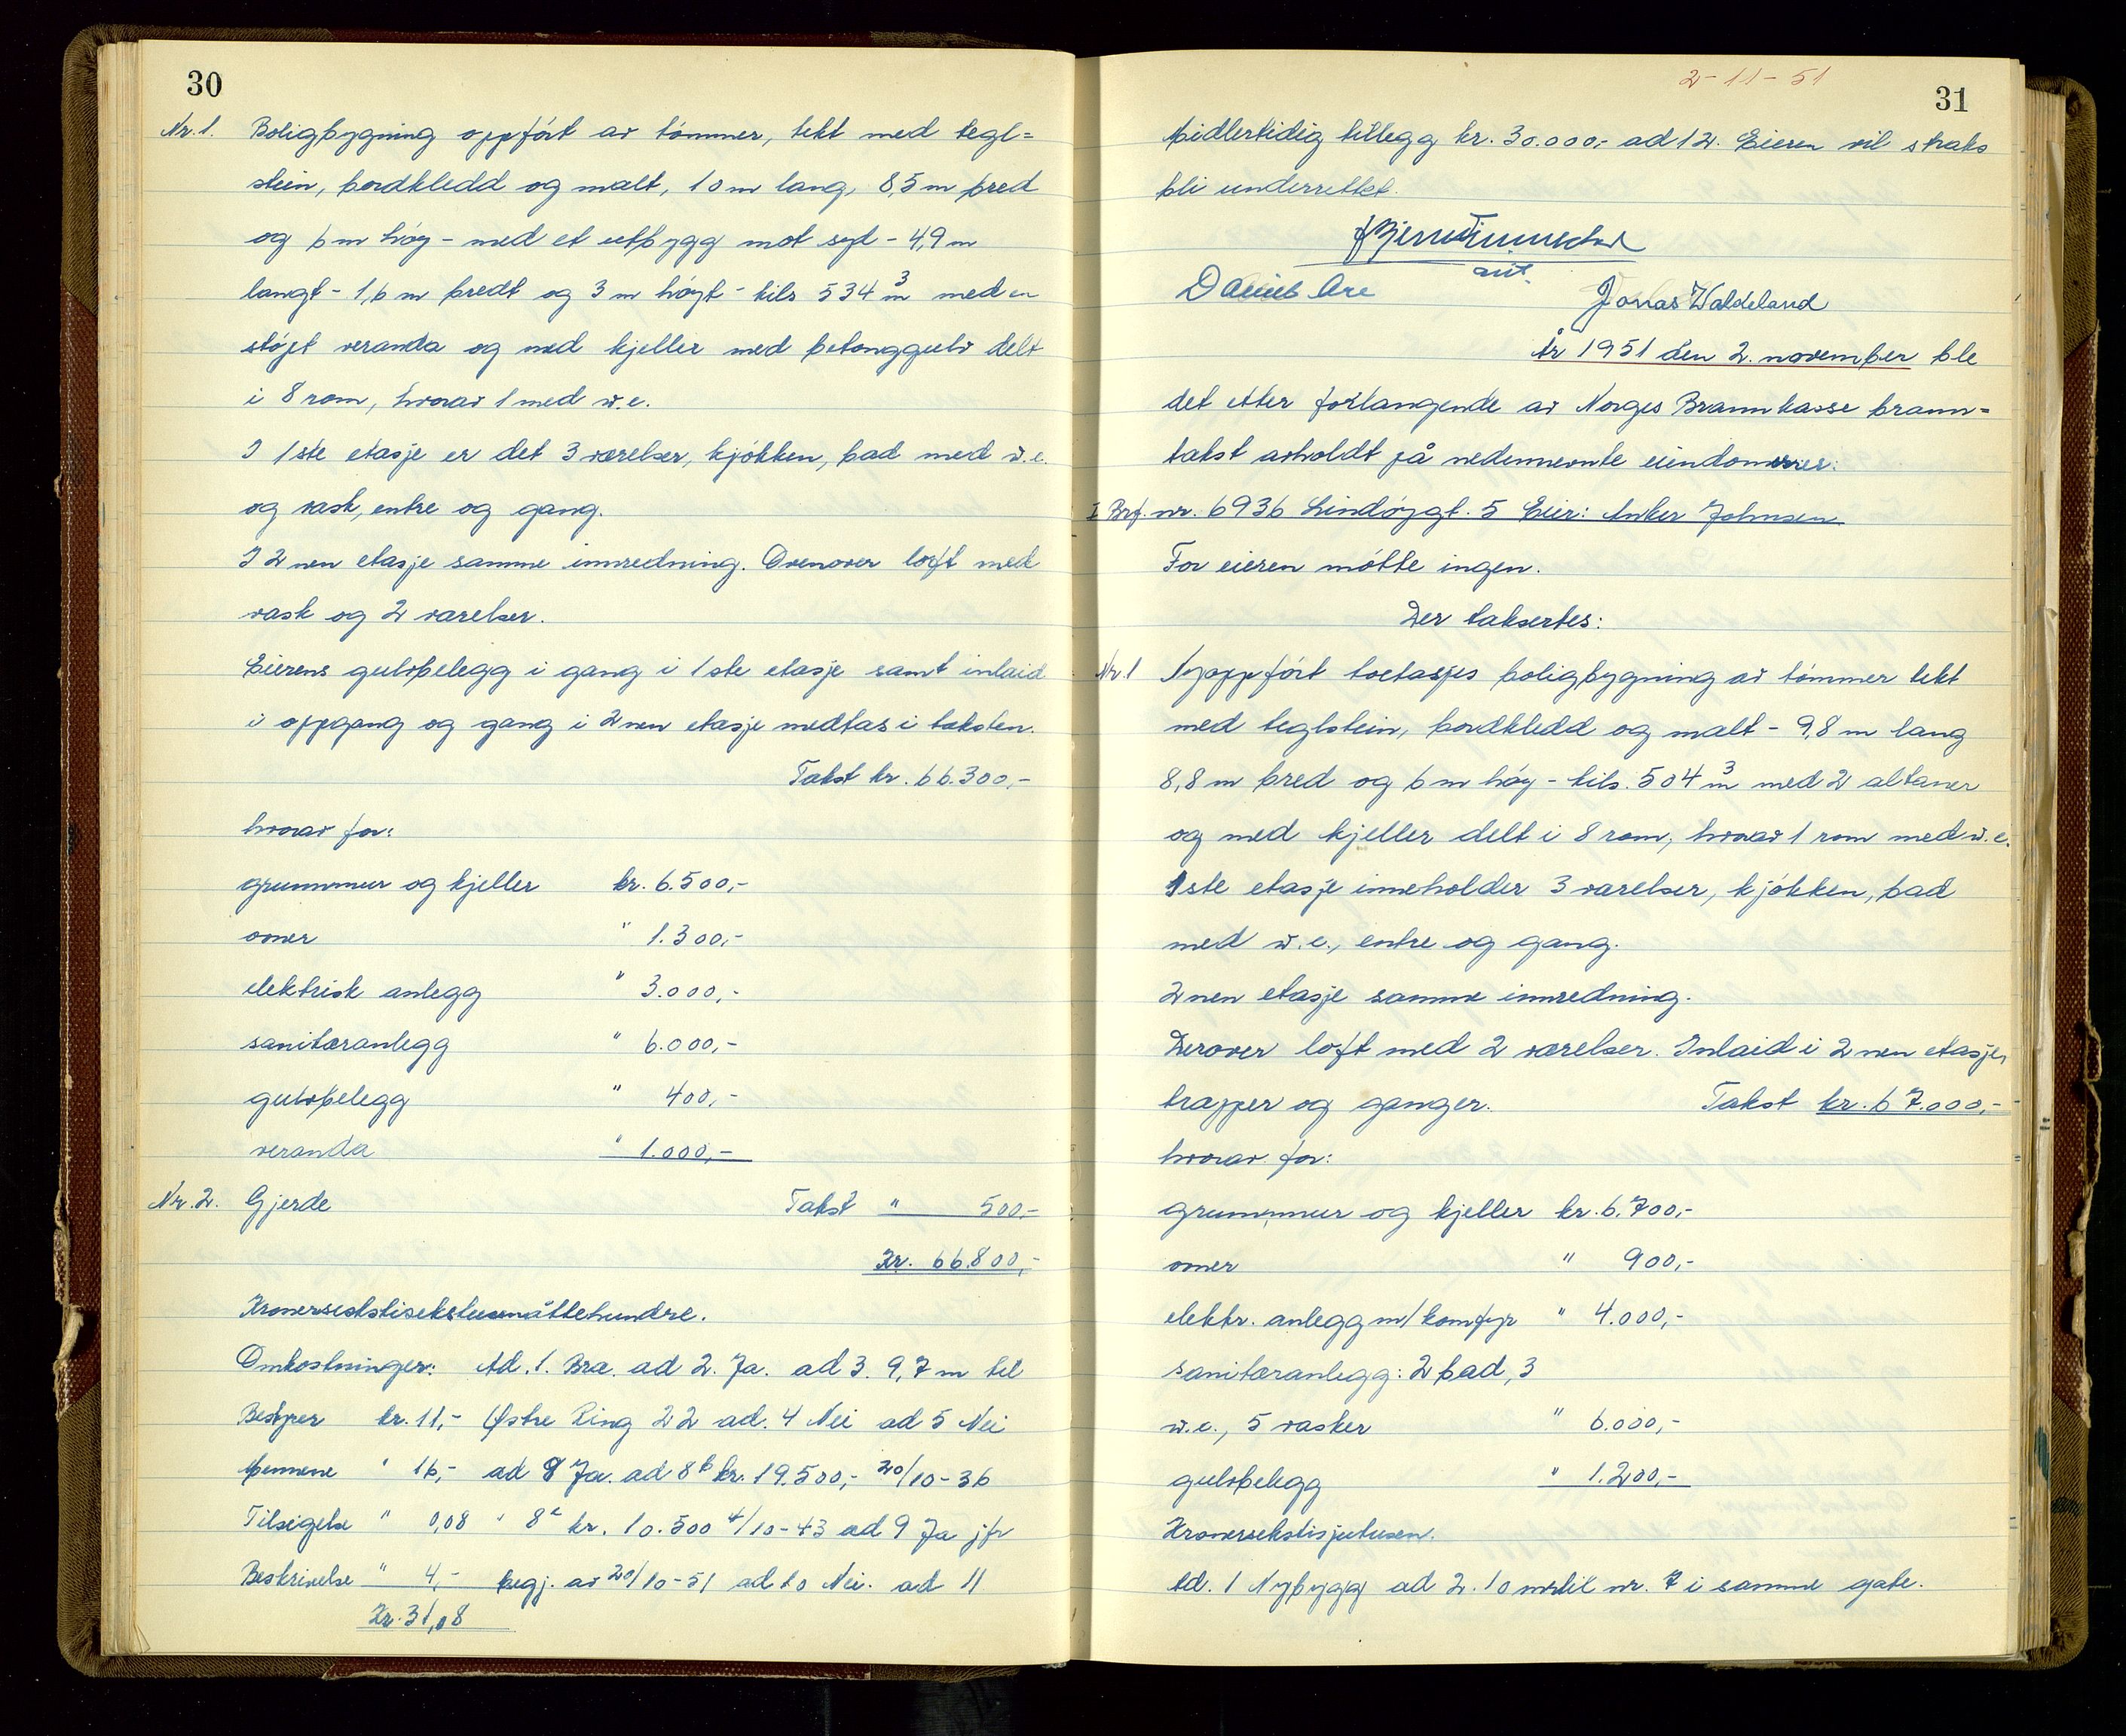 30
Nr. 1. Boligbygning oppført av tømmer, tekt med tegl=
stein, bordkledd og malt, 10 m lang, 8,5 m bred
og 6 m høy - med et utbygg mot syd - 4,9 m
langt - 1,6 m bredt og 3 m høyt - tils 534 m³ med en
støpt veranda og med kjeller med betonggulv delt
i 8 rom, hvorav 1 med w.c.
I 1ste etasje er det 3 værelser, kjøkken, bad med w.c.
og vask, entre og gang.
I 2nen etasje samme innredning. Ovenover loft med
vask og 2 værelser.
Eierens gulvbelegg i gang i 1ste etasje samt inlaid
i oppgang og gang i 2nen etasje medtas i taksten.
Takst kr. 66.300,-
hvorav for:
grunnmur og kjeller kr. 6.500,-
ovner " 1.300,-
elektrisk anlegg " 3.000,-
sanitæranlegg " 6.000,-
gulvbelegg " 400,-
veranda " 1.000,-
Nr. 2. Gjerde Takst " 500,-
Kr. 66.800,-
Kronersekstisekstusenåttehundre.
Omkostninger: Ad. 1. Bra. ad 2. Ja. ad 3. 9,7 m til
Bestyrer kr. 11,- Østre Ring 22 ad. 4 Nei ad 5 Nei
Mennene " 16,- ad 8 Ja. ad 8 b kr. 19.500,- 20/10-36
Tilsigelse " 0,08 " 8 c kr. 10.500 4/10-43 ad 9 Ja jfr
Beskrivelse " 4,- begj. av 20/10-51 ad 10 Nei. ad 11
Kr. 31,08
2-11-51
31
Midlertidig tillegg kr. 30.000,- ad 12. Eieren vil straks
bli underrettet.
Jonas Waldeland
År 1951 den 2. november ble
det etter forlangende av Norges Brannkasse brann=
takst avholdt på nedennevnte eiendommer:
I Brf. nr. 6936 Lindøygt. 5 Eier: Anker Johnsen
For eieren møtte ingen.
Der taksertes:
Nr. 1 Nyoppført toetasjes boligbygning av tømmer tekt
med teglstein, bordkledd og malt - 9,8 m lang
8,8 m bred og 6 m høy - tils. 504 m³ med 2 altaner
og med kjeller delt i 8 rom, hvorav 1 rom med w.c.
1ste etasje inneholder 3 værelser, kjøkken, bad
med w.c., entre og gang.
2nen etasje samme innredning.
Derover loft med 2 værelser. Inlaid i 2nen etasje,
trapper og ganger. Takst kr. 67.000,-
hvorav for:
grunnmur og kjeller kr. 6.700,-
ovner " 900,-
elektr. anlegg m/komfyr " 4.000,-
sanitæranlegg: 2 bad, 3
w.c., 5 vasker " 6.000,-
gulvbelegg " 1.200,-
Kronersekstisjutusen.
Ad. 1 Nybygg ad 2. 10 m til nr. 7 i samme gate.